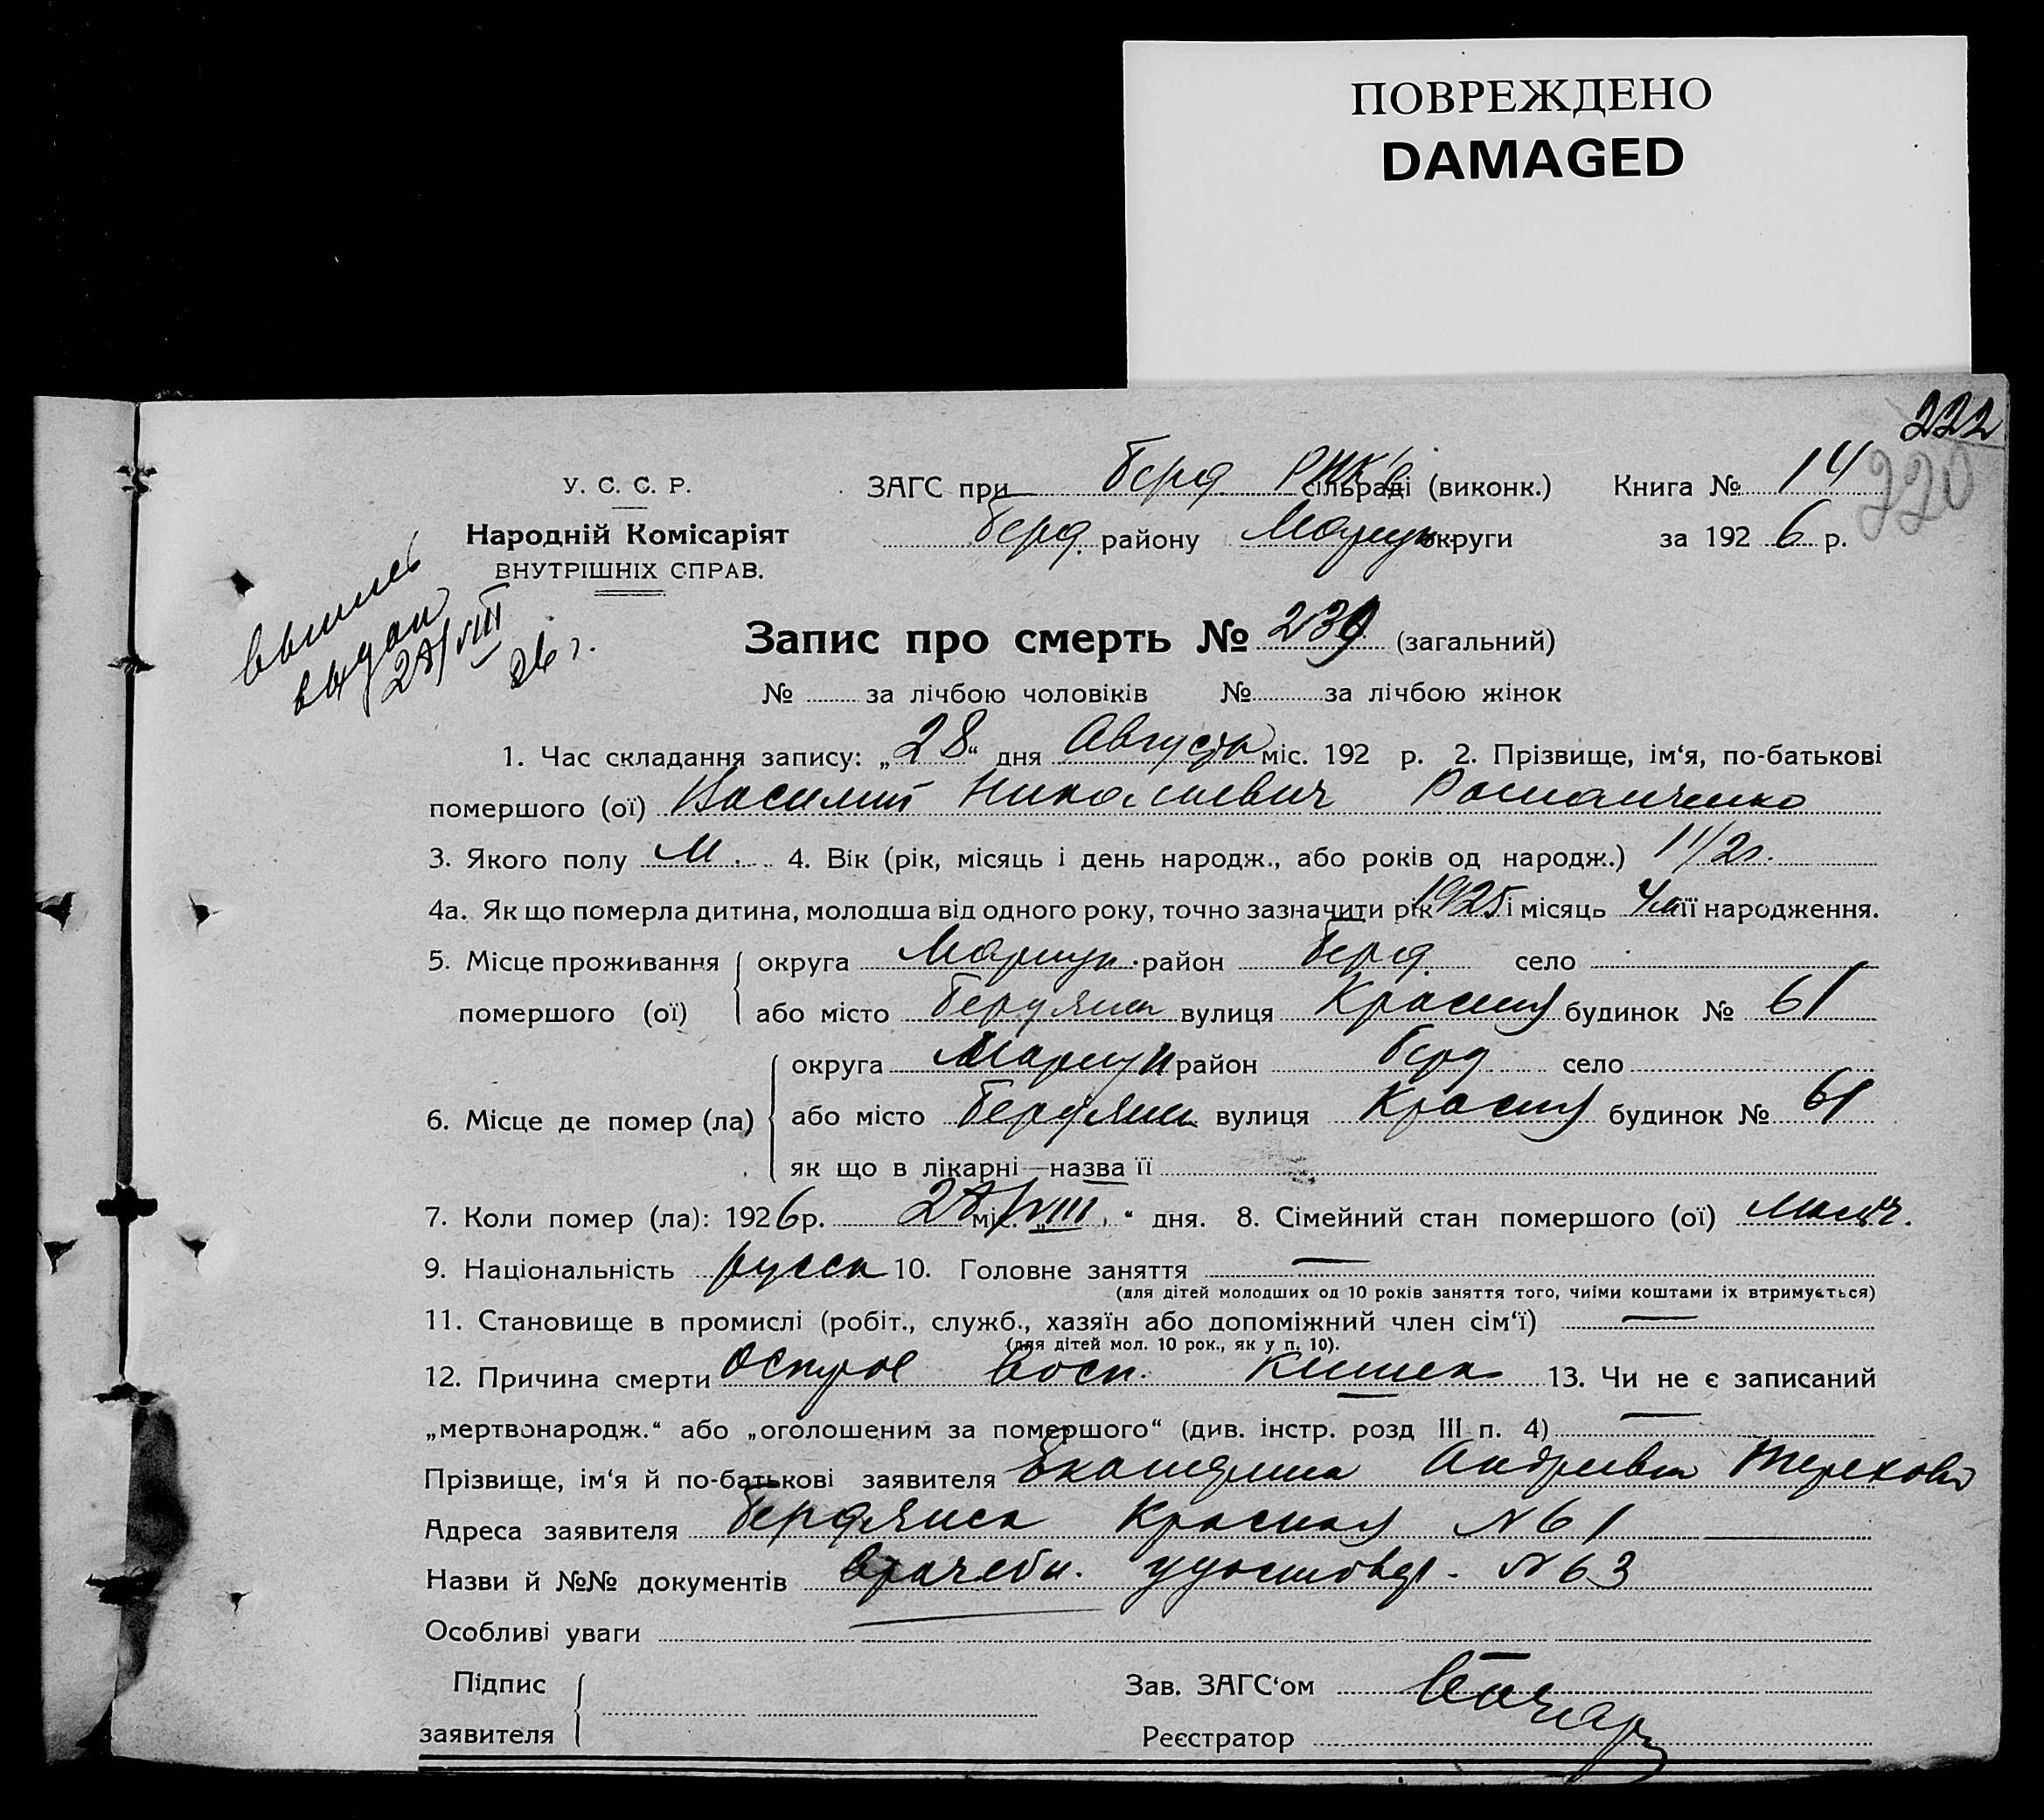 ПОВРЕЖДЕНО
DAMAGED
222
220
У. С. С. Р.
Народній Комісаріят
ВНУТРІШНІХ СПРАВ.
ЗАГС при Берд РИК'е сільраді (виконк.) Книга № 14
Берд. району Мариуп. округи за 1926 р.
выпись
выдан
28/VIII
26 г.
Запис про смерть № 239 (загальний)
№ за лічбою чоловіків № за лічбою жінок
1. Час складання запису: „28“ дня Августа міс. 192 р. 2. Прізвище, ім‘я, по-батькові
помершого (ої) Василий Николаевич Романченко
3. Якого полу М. 4. Вік (рік, місяць і день народж., або років од народж.) 1 1/2 г.
4а. Як що померла дитина, молодша від одного року, точно зазначити рік 1925 і місяць її народження.
5. Місце проживання округа Мариуп. район Берд. село
помершого (ої) або місто Бердянск вулиця Красная будинок № 61
округа Мариуп район Берд село
6. Місце де помер (ла) або місто Бердянск вулиця Красная будинок № 61
як що в лікарні—назва її
7. Коли помер (ла): 1926 р. 28/VIII міс. „ “ дня. 8. Сімейний стан помершого (ої)
9. Національність русск 10. Головне заняття —
(для дітей молодших од 10 років заняття того, чиїми коштами їх втримується)
11. Становище в промислі (робіт., служб., хазяїн або допоміжний член сім‘ї) —
(для дітей мол. 10 рок., як у п. 10).
12. Причина смерти Острое восп. кишек 13. Чи не є записаний
„мертвонародж.“ або „оголошеним за помершого“ (див. інстр. розд III п. 4) —
Прізвище, ім‘я й по-батькові заявителя Екатерина Андреевна Терехова
Адреса заявителя Бердянск Красная № 61
Назви й №№ документів врачебн. удостовер. № 63
Особливі уваги
Підпис Зав. ЗАГС‘ом
заявителя Реєстратор